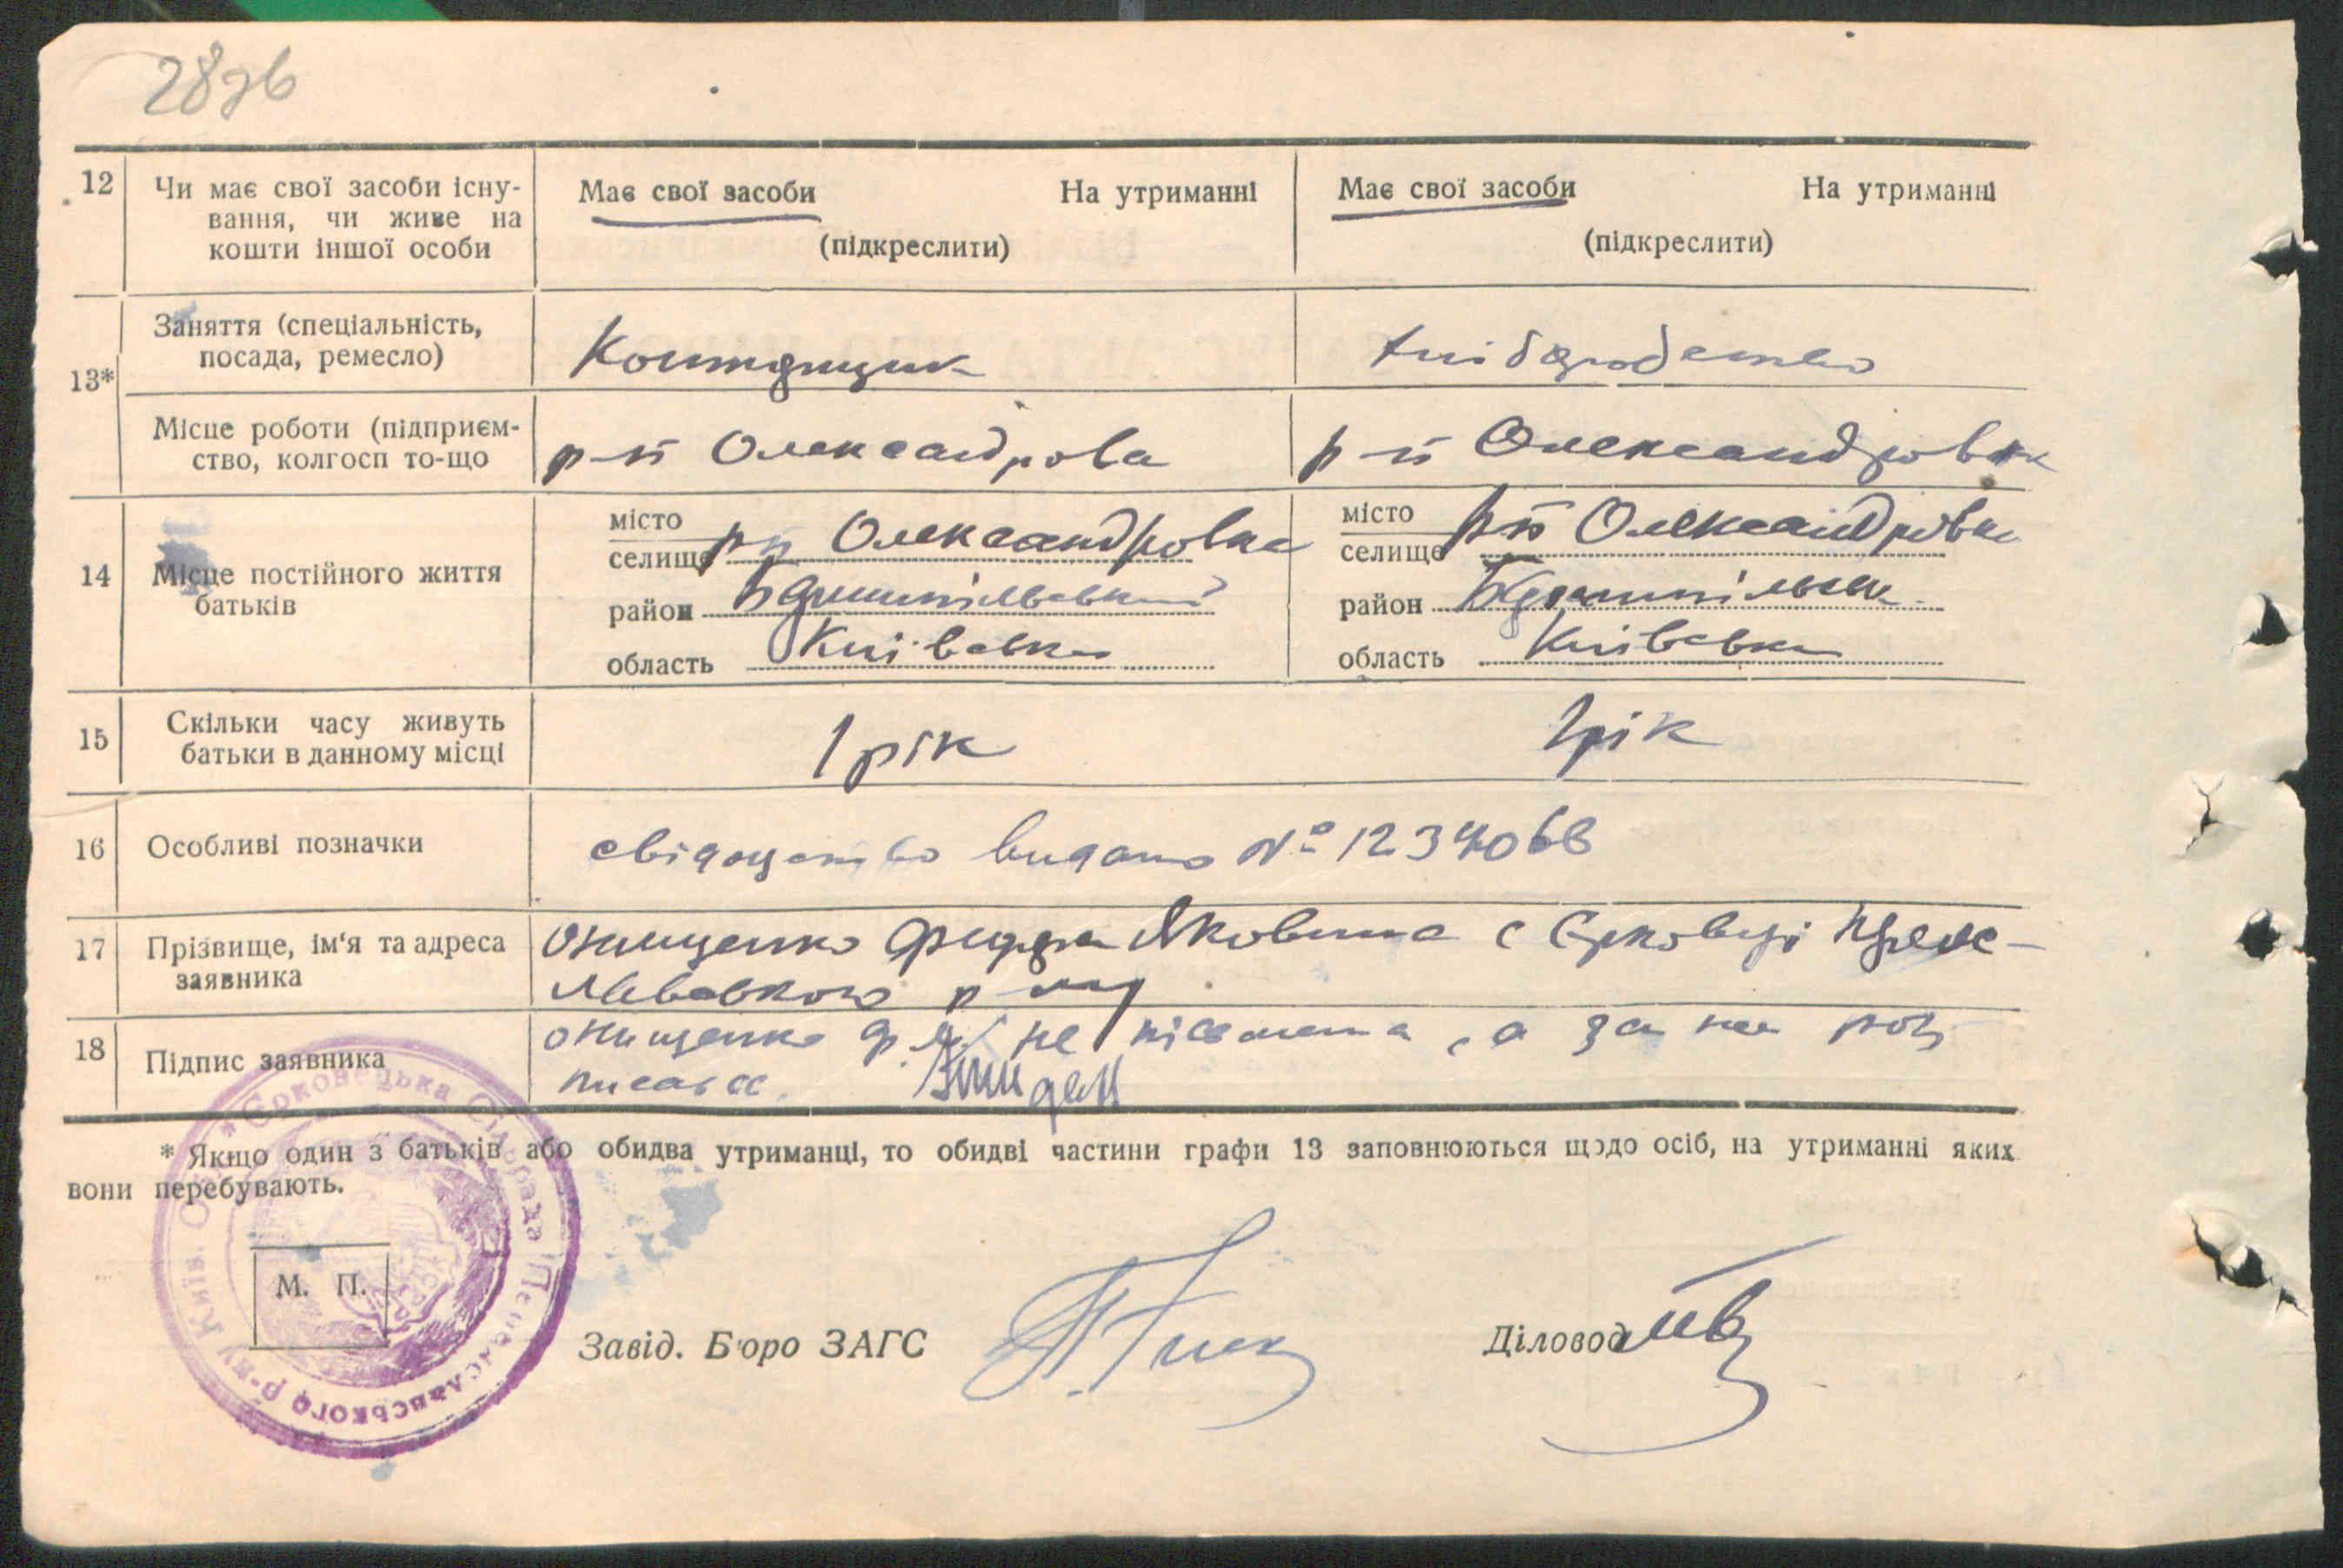 28зв
12 Чи має свої засоби існу-
вання, чи живе на
кошти іншої особи
Має свої засоби На утриманні
(підкреслити)
Має свої засоби На утриманні
(підкреслити)
13*
Заняття (спеціальність,
посада, ремесло)
Місце роботи (підприєм-
ство, колгосп то-що
р-п Олександрова
р-п Олександровка
14 Місце постійного життя
батьків
місто
селище рп Олександровка
район Баришпільський
область Київська
місто
селище рп Олександровка
район
область Київська
15 Скільки часу живуть
батьки в данному місці
1 рік
1 рік
16 Особливі позначки
свідоцтво видано № 1234068
17 Прізвище, ім'я та адреса
заявника
Онищенко Яковина с Єрковці Переяс-
лавского р-ну
18 Підпис заявника
Онищенко ф. я. не письмена, а за неї роз
писався
* Якщо один з батьків або обидва утриманці, то обидві частини графи 13 заповнюються щодо осіб, на утриманні яких
вони перебувають.
М. П.
Єрковецька Сільрада Переяславського р-ну Київ. Обл.
Завід. Бюро ЗАГС
Діловод